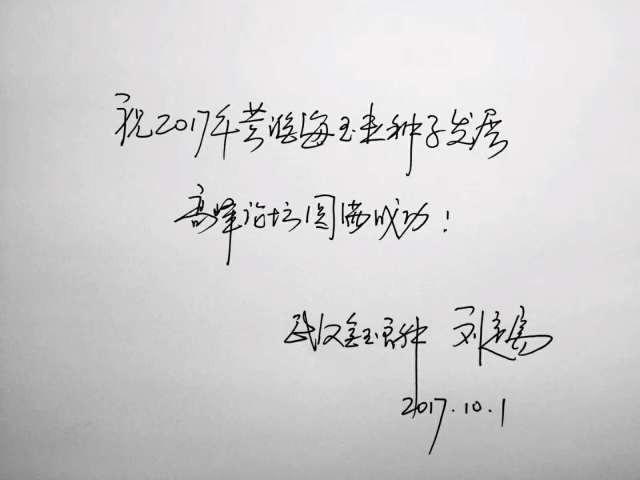 祝2017年黄淮海玉米种子发展
高峰论坛圆满成功！
武汉金玉良种 刘定富
2017.10.1